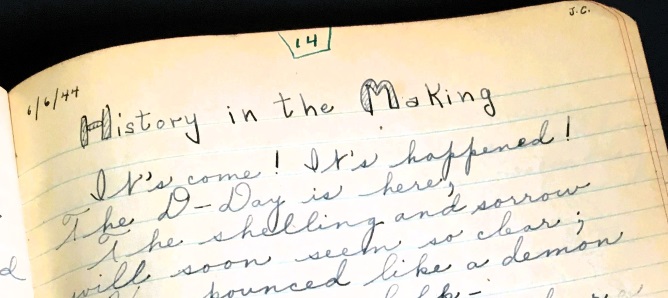 J.C.
14
6/6/44
History in the Making
It's come! It's happened!
The D-Day is here;
The shelling and sorrow
will soon seem so clear;
pounced like a demon
d